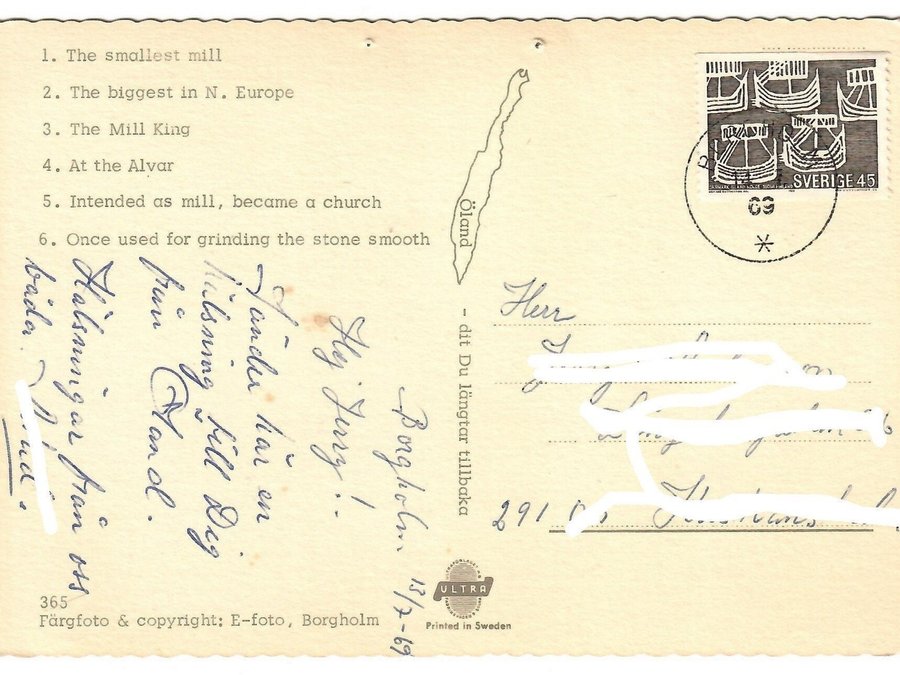 1. The smallest mill
2. The biggest in N. Europe
3. The Mill King
4. At the Alvar
5. Intended as mill, became a church
6. Once used for grinding the stone smooth
Öland
- dit Du längtar tillbaka
Borgholm 13/7-69
Hej Jerry!
Sänder här en
hälsning till Dig
från Öland.
Hälsningar från oss
båda.
365
Färgfoto & copyright: E-foto, Borgholm
ULTRA
Printed in Sweden
SVERIGE 45
69
Herr
291